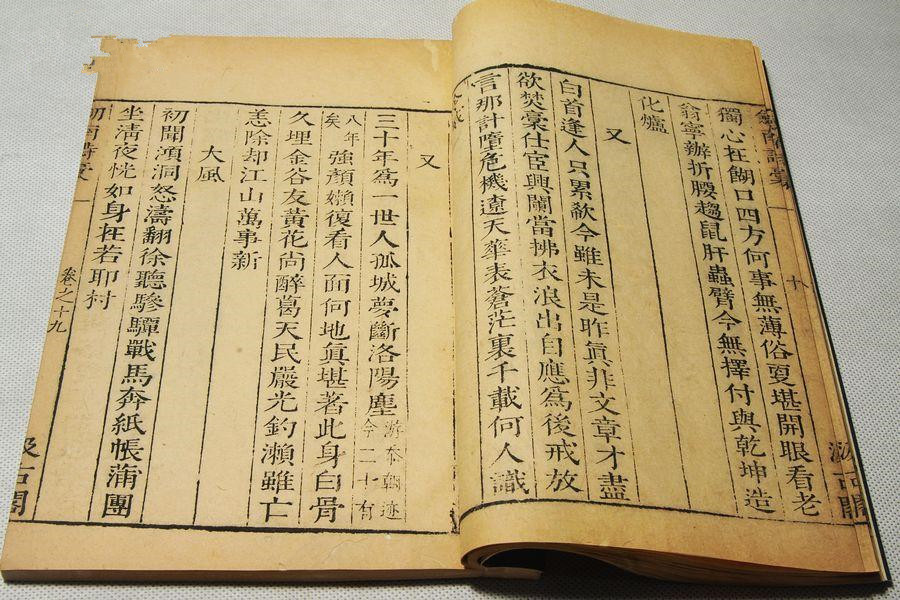 劍南詩稾
十
汲古閣
獨心在餬口四方何事無薄俗更堪開眼看老
翁寧辦折腰趨鼠肝蟲臂今無擇付與乾坤造
化爐
又
白首逢人只累欷今雖未是昨眞非文章才盡
欲焚稾仕宦興闌當拂衣浪出自應爲後戒放
言那計墮危機遼天華表蒼茫裏千載何人識
令威
又
三十年爲一世人孤城夢斷洛陽塵奉朝迹今二十有
八年矣強顏嬾復看人面何地眞堪著此身白骨
久埋金谷友黃花尚醉葛天民嚴光釣瀨雖亡
恙除却江山萬事新
大風
初聞澒洞怒濤翻徐聽驂驔戰馬奔紙帳蒲團
坐清夜恍如身在若耶村
劍南詩稾
卷之十九
汲古閣